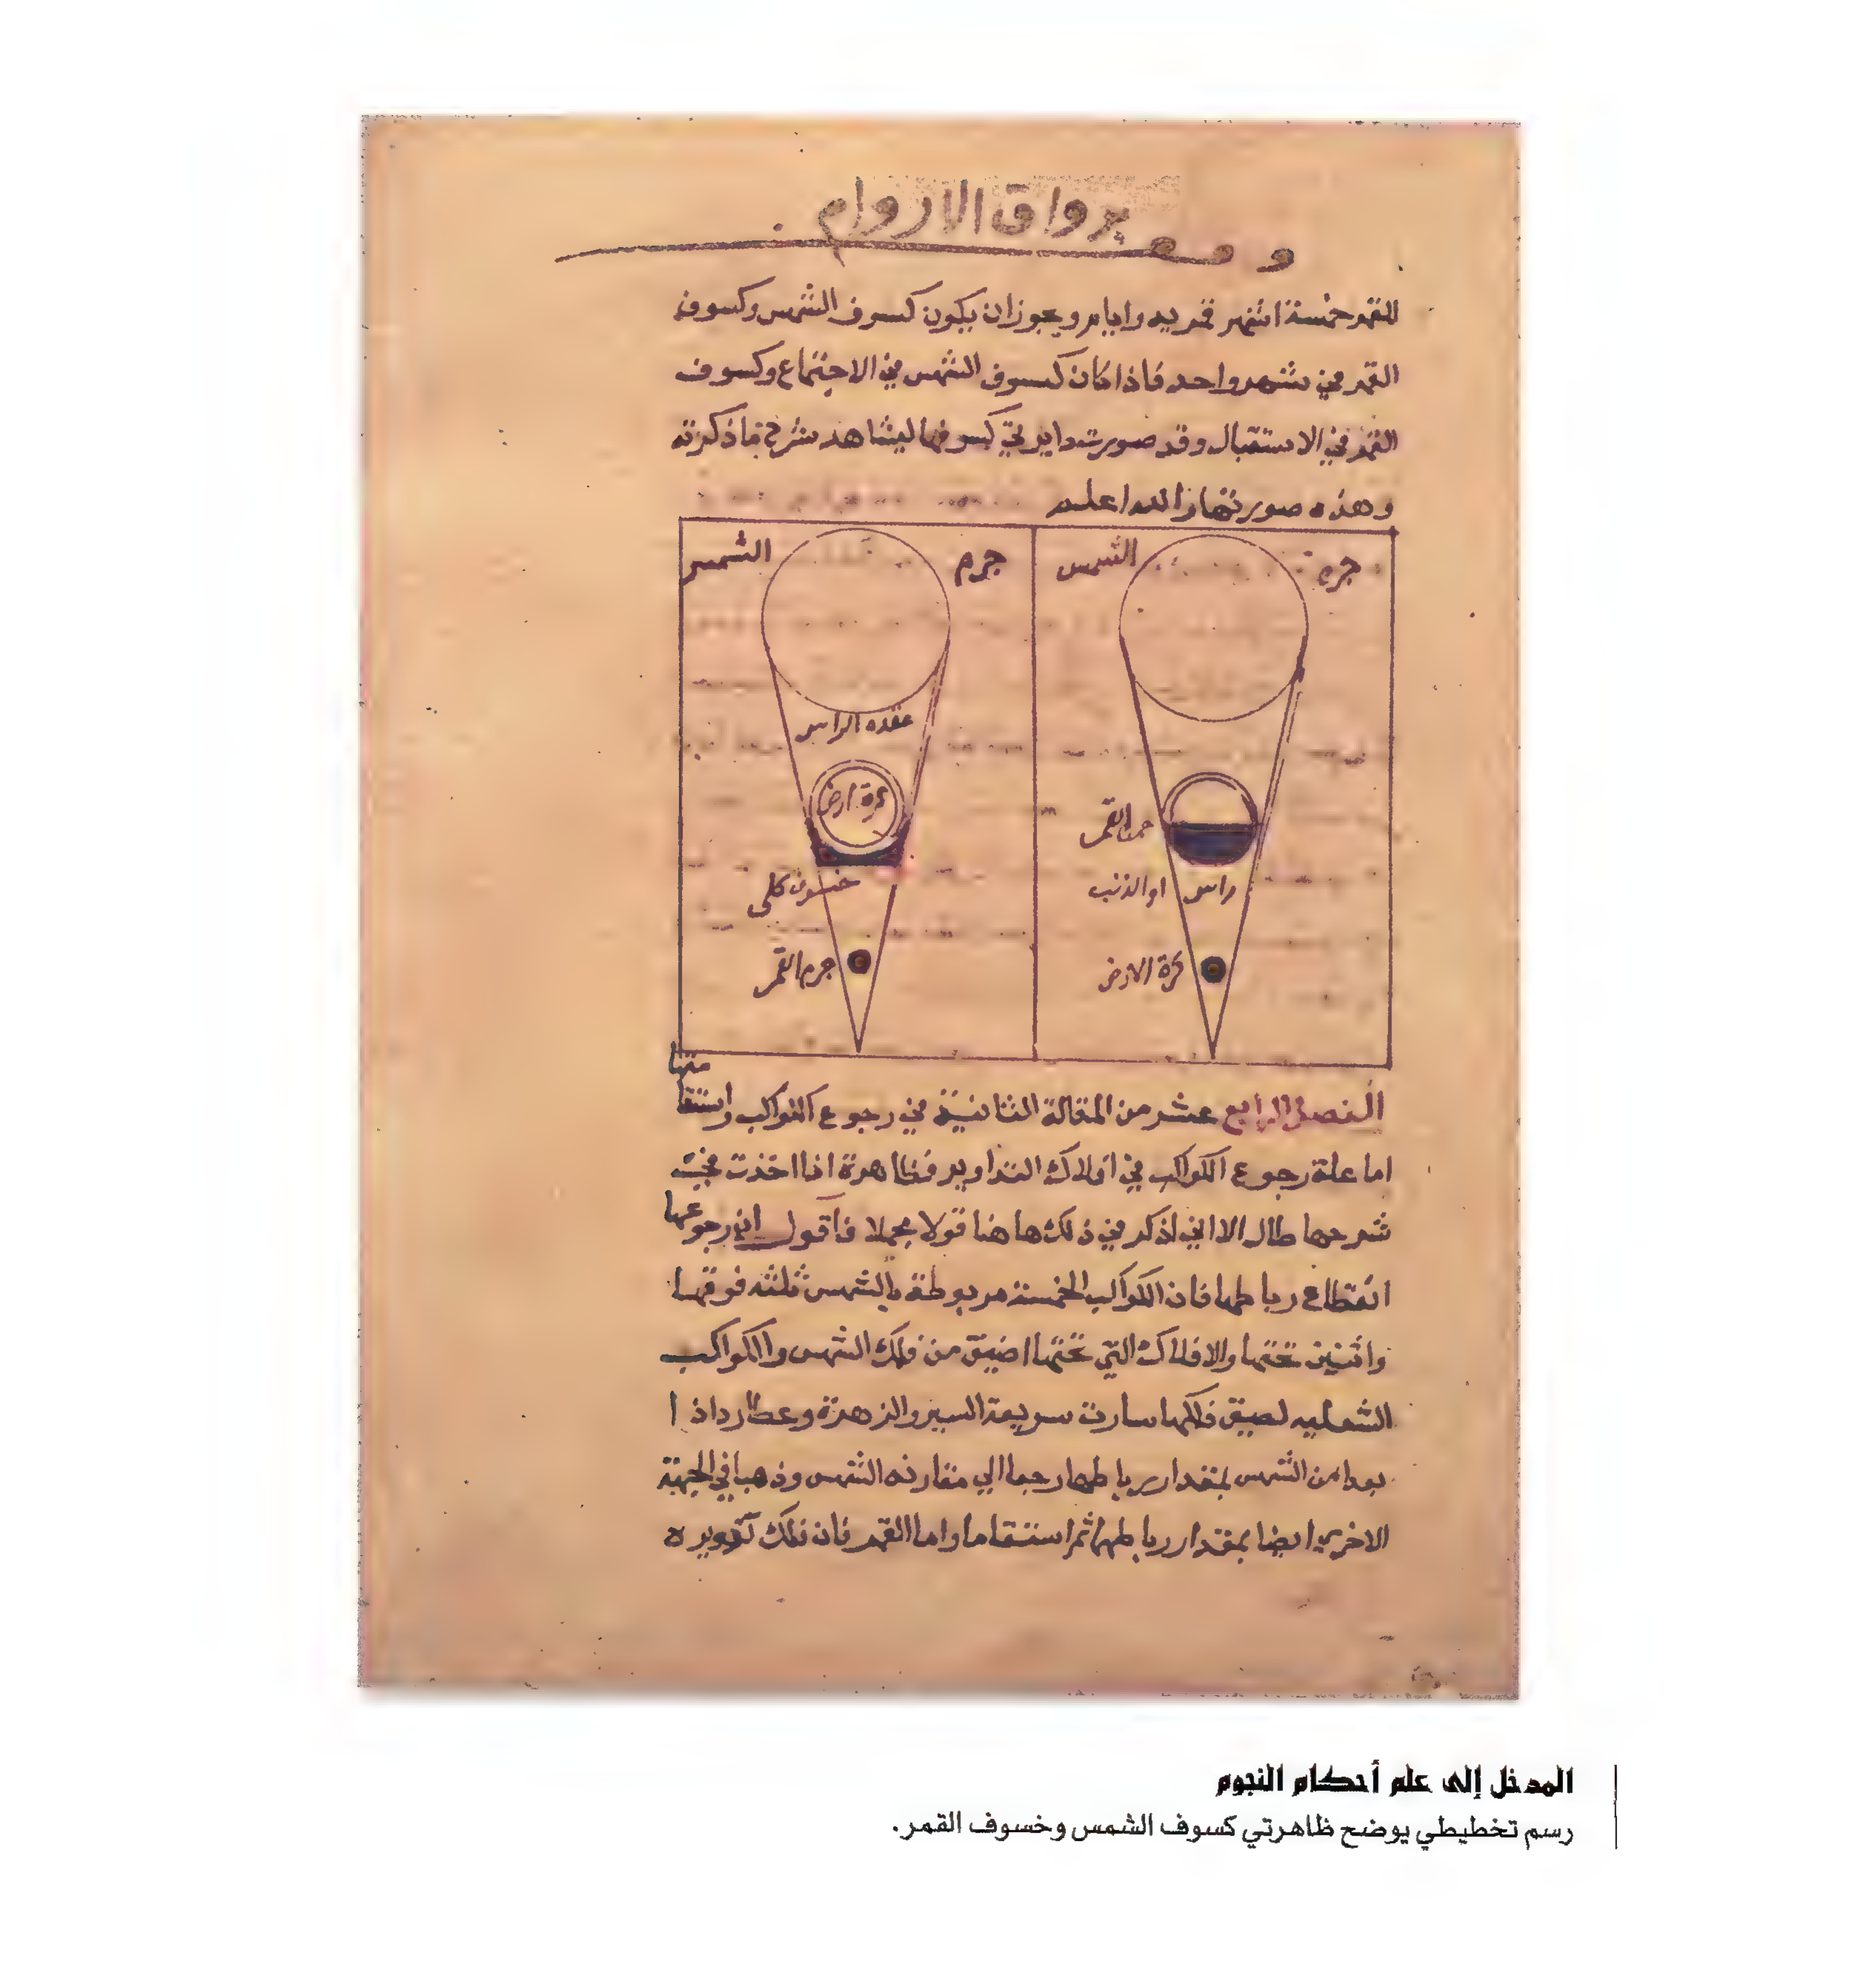 وقف برواق الاروام
للقمر خمسة اشهر قمريه وايام ويجوز ان يكون كسوف الشمس وكسوف
القمر في شهر واحد فاذا كان كسوف الشمس في الاجتماع وكسوف
القمر في الاستقبال وقد صورت دايرتي كسوفها ليشاهد شرح ماذكرته
وهذه صورتها والله اعلم
جرم الشمس
جرم الشمس
القمر
راس او الذنب
كرة الارض
عقده الراس
كرة ارض
خسوف كلى
جرم القمر
الفصل الرابع عشر من المقالة الثانية في رجوع الكواكب واستقا
متها
اما علة رجوع الكواكب في افلاك التداوير فظاهرة اذا اخذت في
شرحها طال الا اني اذكر في ذلك هاهنا قولا مجملا فاقول ان رجوعها
انقطاع رباطها فان الكواكب الخمسة مربوطة بالشمس ثلثه فوقها
واثنين تحتها والافلاك التي تحتها اضيق من فلك الشمس والكواكب
لضيق فلكها سارت سريعة السير والزهرة وعطارد اذا
بعدا من الشمس بمقدار رباطها رجعا الي مقارنه الشمس وذهبا في الجهة
الاخري ايضا بمقدار رباطها ثم استقاما واما القمر فان فلك تدويره
المدخل إلى علم أحكام النجوم
رسم تخطيطي يوضح ظاهرتي كسوف الشمس وخسوف القمر.